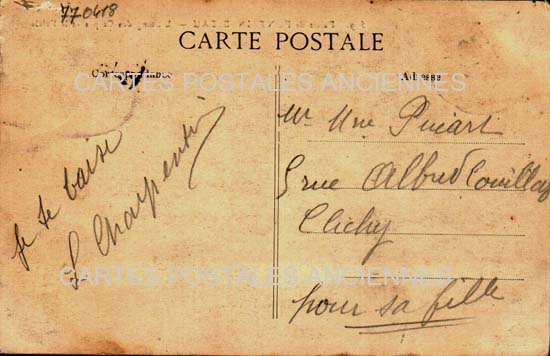 770418
CARTE POSTALE
Correspondance
Adresse
CARTES POSTALES ANCIENNES
Je te baise
L Charpentier
Mr Mme Picart
5 rue Alfred Couillay
Clichy
CARTES POSTALES ANCIENNES
pour sa fille